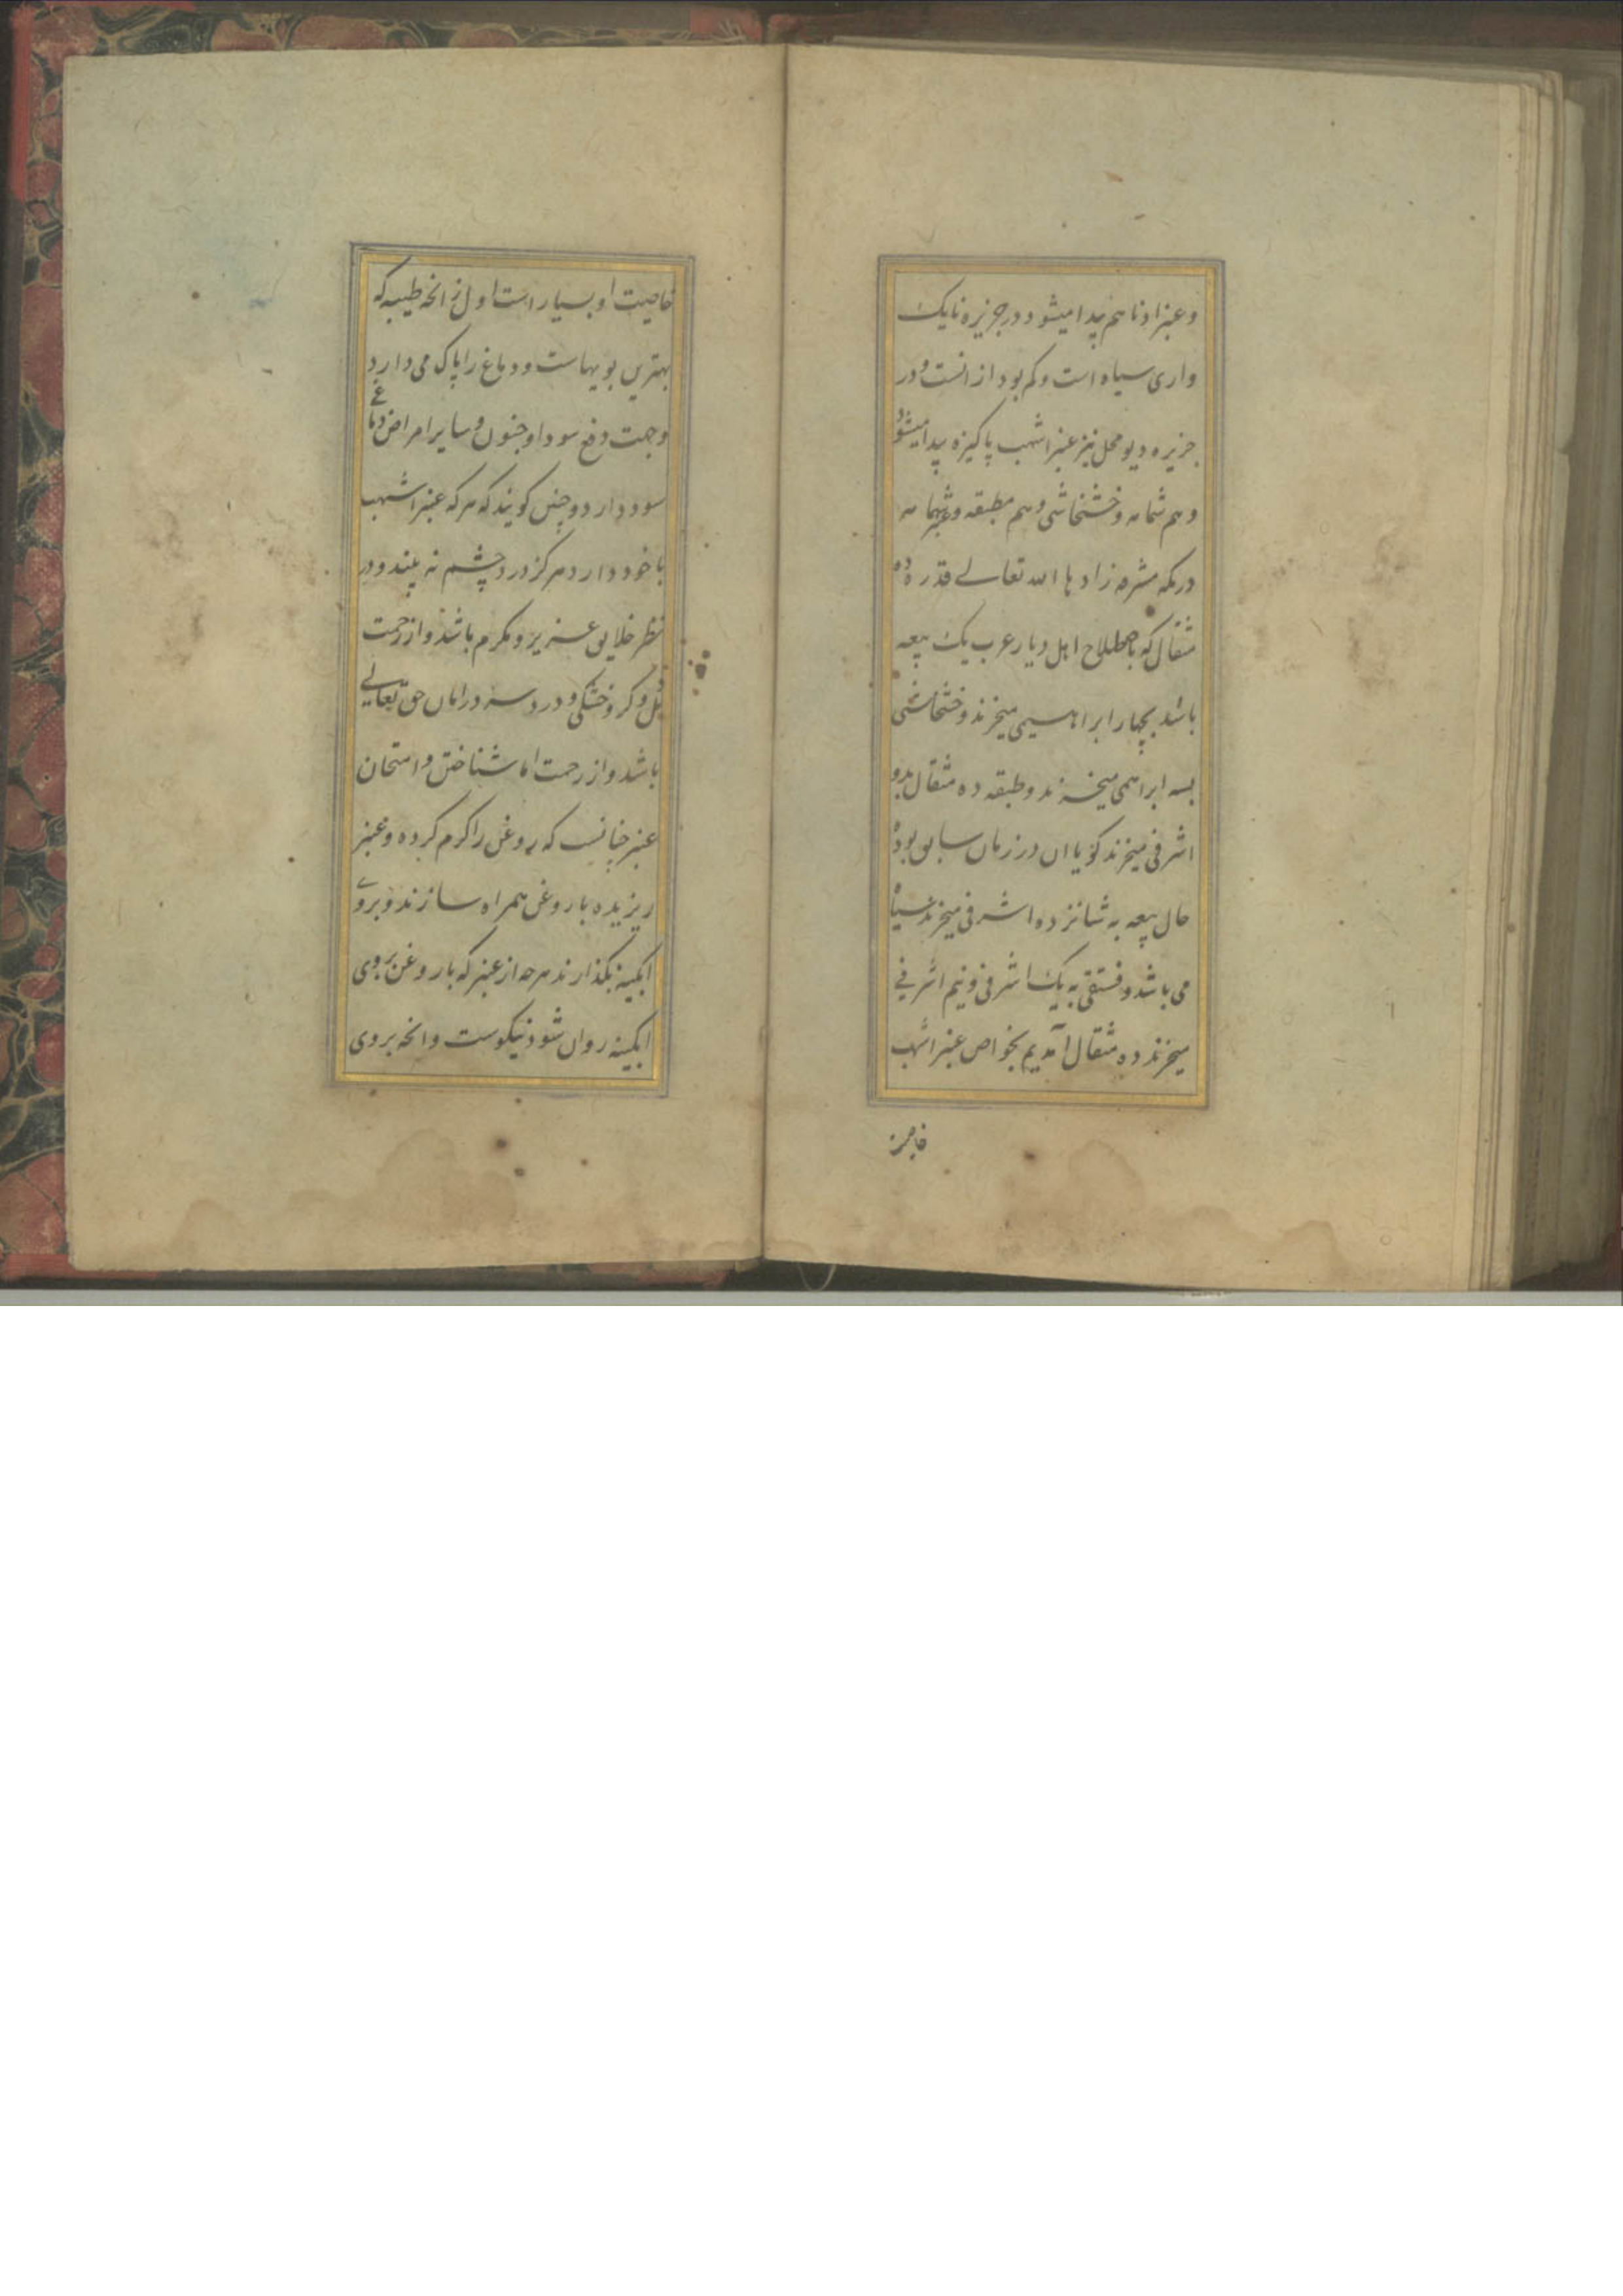 وعنبر ادنا هم پیدا میشود ودر جزیره نایک
واری سیاه است وکم بود از انست ودر
جزیره دیو محل نیز عنبر اشهب پاکیزه پیدا میشود
وهم شمامه وخشخاشی وهم مطبقه وعنبر شمامه
در مکه مشرفه زادها الله تعالی قدر ده
مثقال که باصطلاح اهل دیار عرب یک بیعه
باشد بچهار ابراهیمی میخرند وخشخاشی
بسه ابراهمی میخرند وطبقه ده مثقال بدو
اشرفی میخرند کویا ان در زمان سابق بوده
حال بیعه به شانزده اشرفی میخرند سیاه
می باشد وفستقی به یک اشرفی ونیم اشرفی
میخرند ده مثقال آمدیم بخواص عنبر اشهب
خاصیت
خاصیت او بسیار است اول رائحه طیبه که
بهترین بویهاست ودماغ را پاک می دارد
وجهت دفع سودا وجنون وسایر امراض دماغی
سود دارد وچنین کویند که هر که عنبر اشهب
با خود دارد هرکز درد چشم نه بیند ودر
نظر خلایق عزیز ومکرم باشد واز زحمت
وکر وخشکی ودرد سر در امان حق تعالی
باشد واز رحمت اما شناختن وامتحان
عنبر چنانست که روغن را کرم کرده وعنبر
ریزیده با روغن همراه سازند وبروی
ابکینه بکذارند هرچه از عنبر که با روغن بروی
ابکینه روان شود نیکوست وانچه بروی